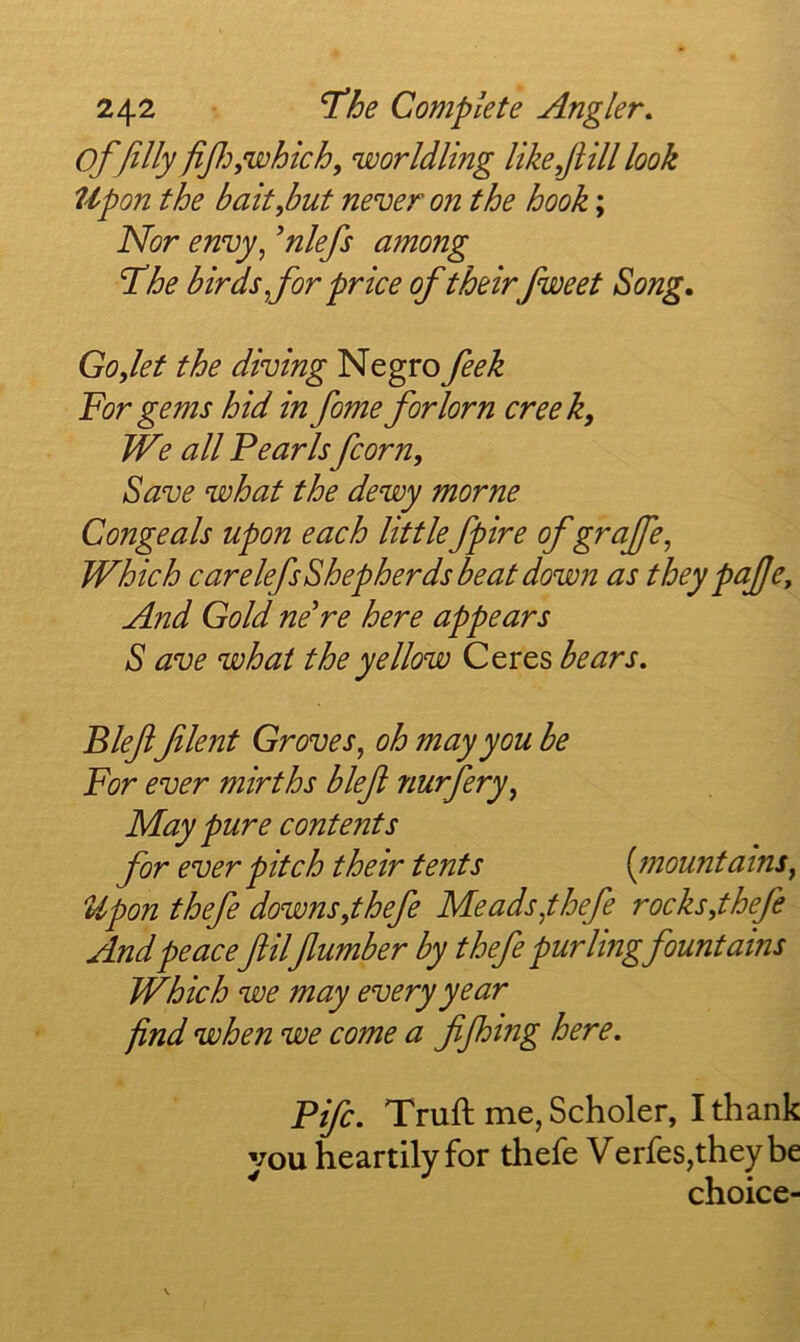 242 The Complete Angler.
of ſilly fiſh,which, worldling like,ſtill look
Upon the bait,but never on the hook;
Nor envy, 'nleſs among
The birds,for price of their ſweet Song.
Go,let the diving Negro ſeek
For gems hid in ſome forlorn creek,
We all Pearls ſcorn,
Save what the dewy morne
Congeals upon each little ſpire of graſſe,
Which careleſs Shepherds beat down as they paſſe,
And Gold ne're here appears
Save what the yellow Ceres bears.
Bleſt ſilent Groves, oh may you be
For ever mirths bleſt nurſery,
May pure contents
for ever pitch their tents (mountains,
Upon theſe downs,theſe Meads,theſe rocks,theſe
And peace ſtil ſlumber by theſe purling fountains
Which we may every year
find when we come a fiſhing here.
Piſc. Truſt me, Scholer, I thank
you heartily for theſe Verſes,they be
choice-